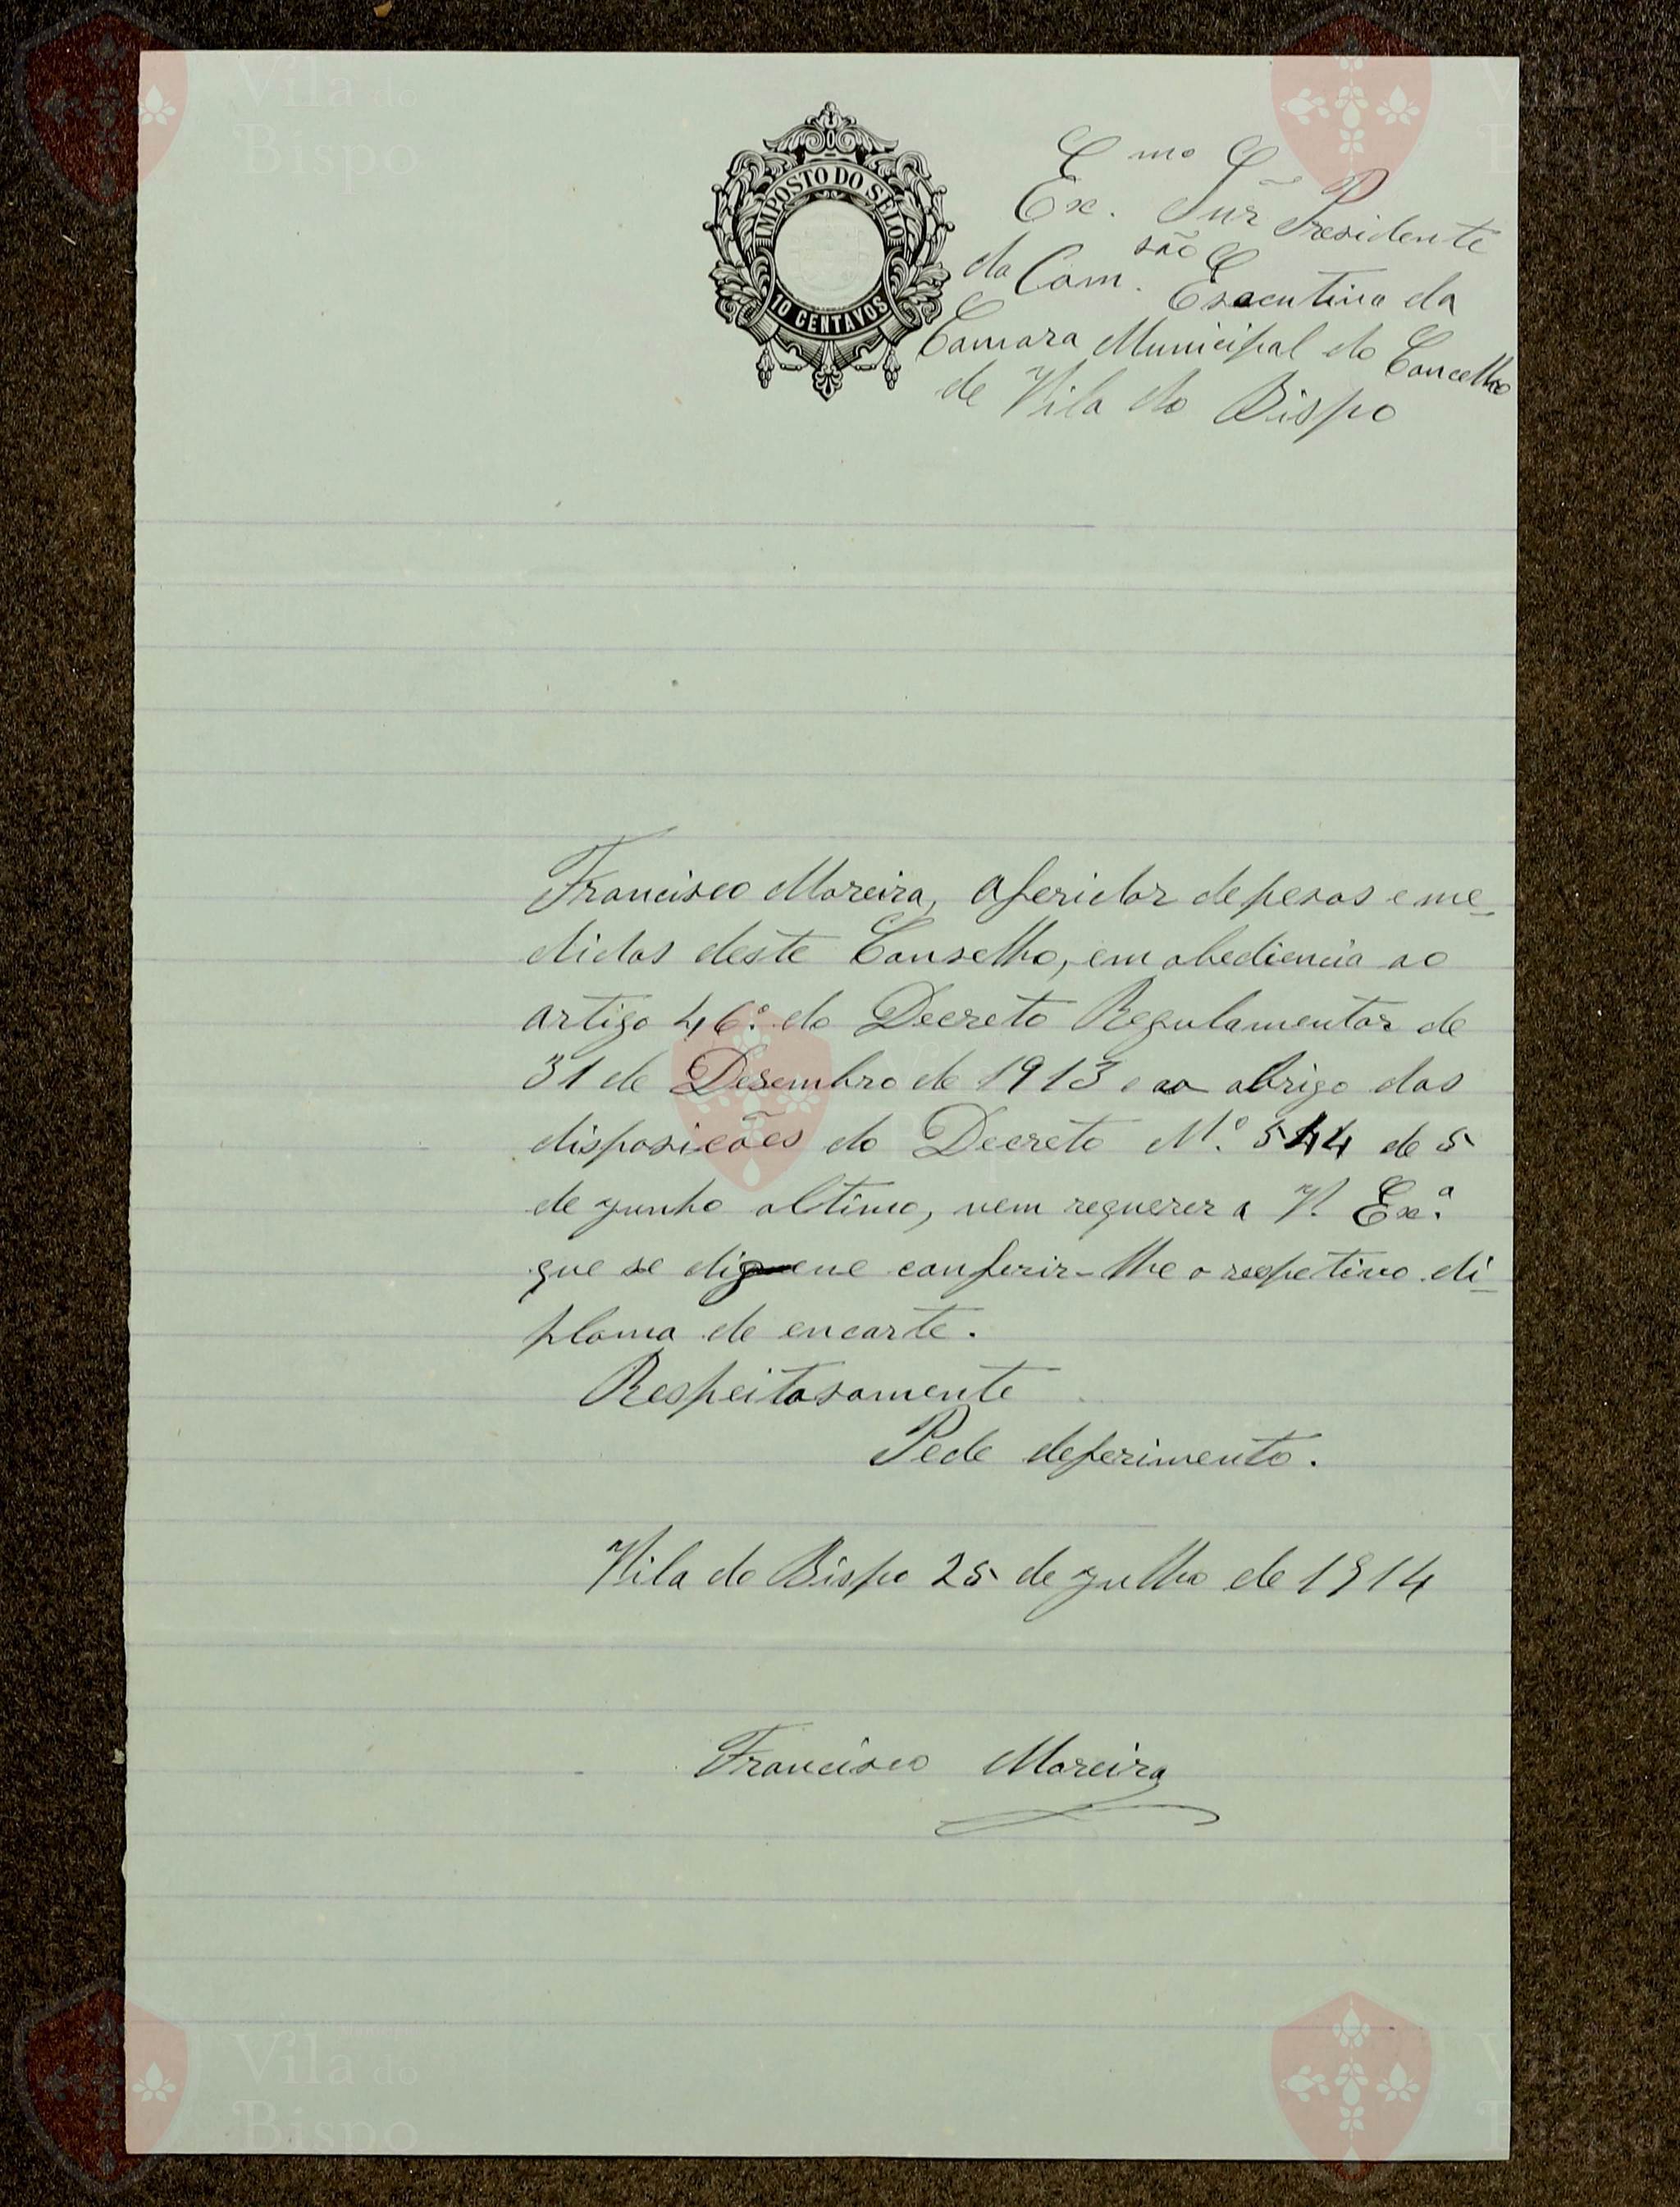 Vila do
Bispo
IMPOSTO DO SELO
10 CENTAVOS
Ex.mo Snr Presidente
da Com.são Executiva da
Camara Municipal do Concelho
de Vila do Bispo
Francisco Moreira, Aferidor de pesos e me-
didas deste Conselho, em obediencia ao
artigo 46º. do Decreto Regulamentar de
31 de Desembro de 1913 e ao abrigo das
disposicões do Decreto Nº. 544 de 5
de junho ultimo, vem requerer a V. Ex.ª
que se digne conferir-lhe o respetivo di-
ploma de encarte.
Respeitosamente
Pede deferimento.
Vila do Bispo 25 de julho de 1914
Francisco Moreira
Vila do
Bispo